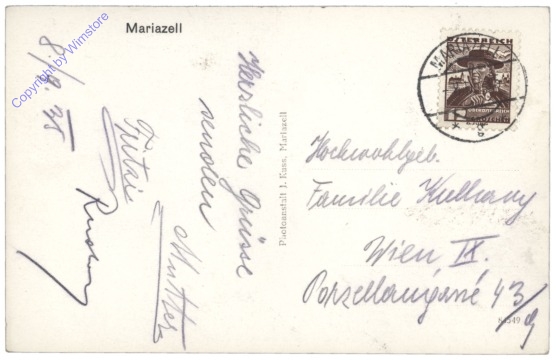 Mariazell
Copyright by Wimstore
8./8. 35
Herzliche Grüsse
senden
Mutter
Photoanstalt J. Kuss, Mariazell
ÖSTERREICH
MARIAZELL
Hochwohlgeb.
Familie Kulhany
Wien IX.
Porzellangasse 43/9